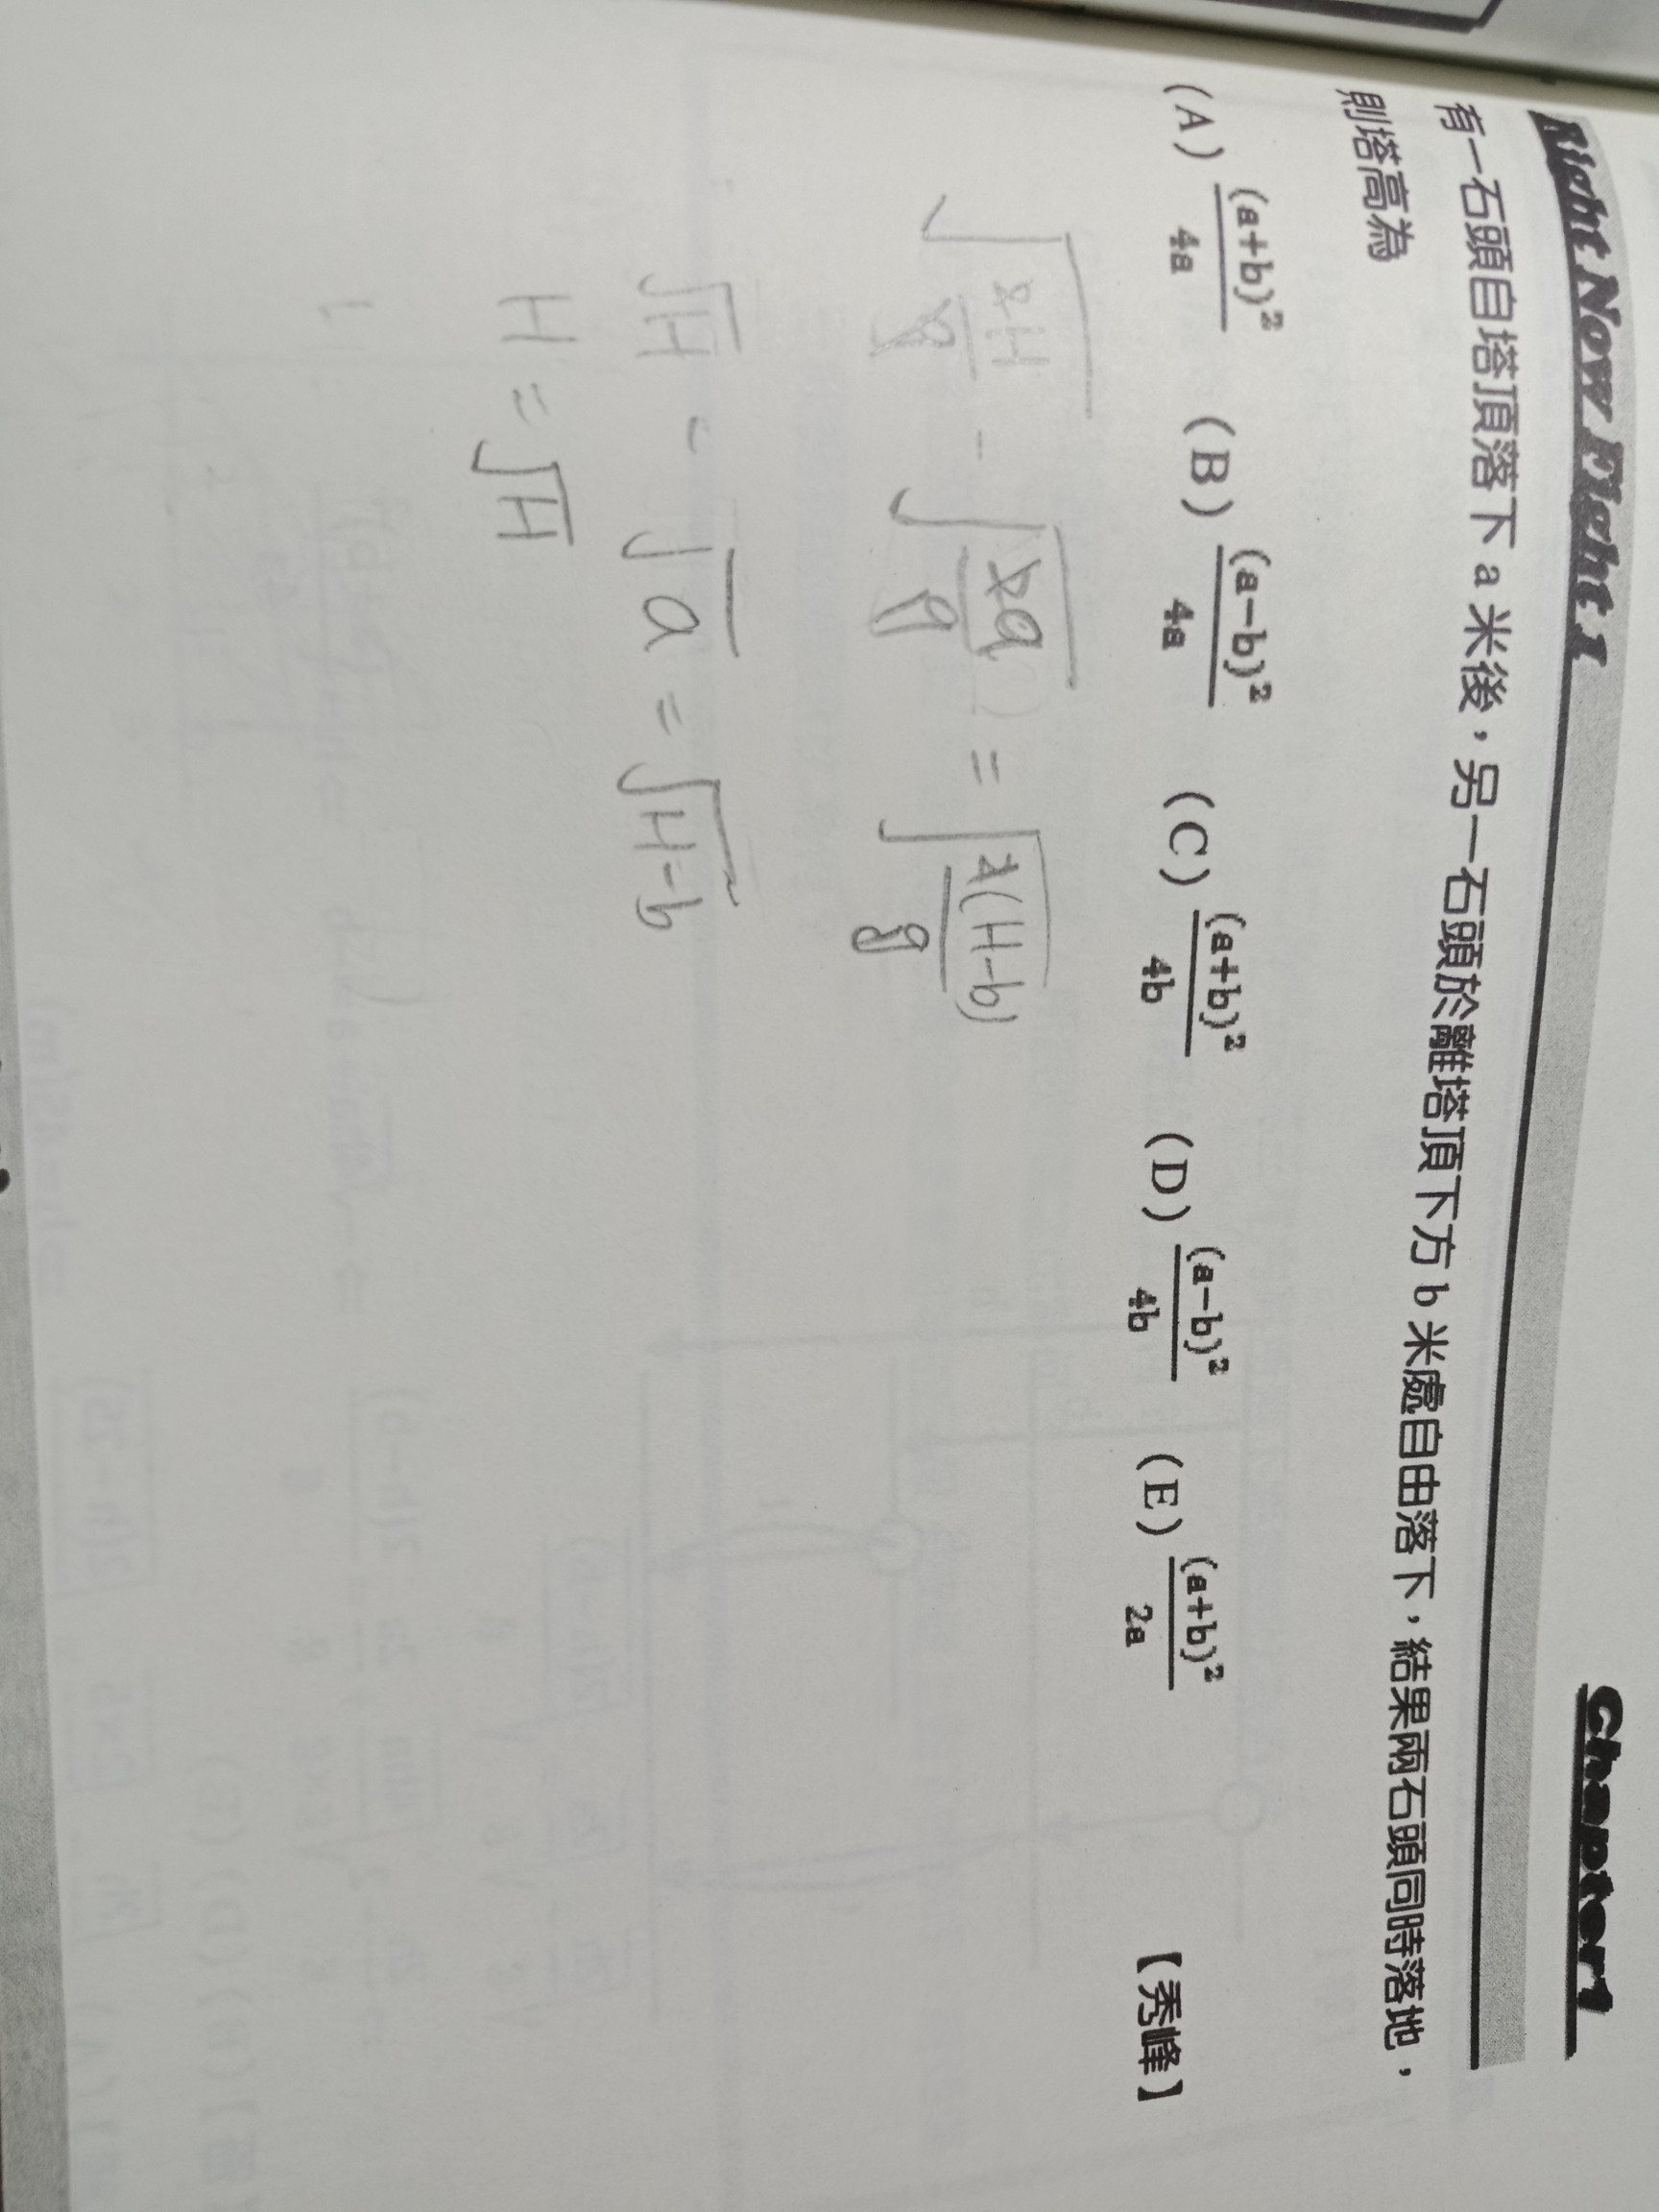 Right Now Fight 1
Chapter1
有一石頭自塔頂落下 a 米後，另一石頭於離塔頂下方 b 米處自由落下，結果兩石頭同時落地，
則塔高為
(A) (a+b)²/4a (B) (a−b)²/4a (C) (a+b)²/4b (D) (a−b)²/4b (E) (a+b)²/2a 【秀峰】
√(2H/g) - √(2a/g) = √(2(H-b)/g)
√H - √a = √H-b
H = √H